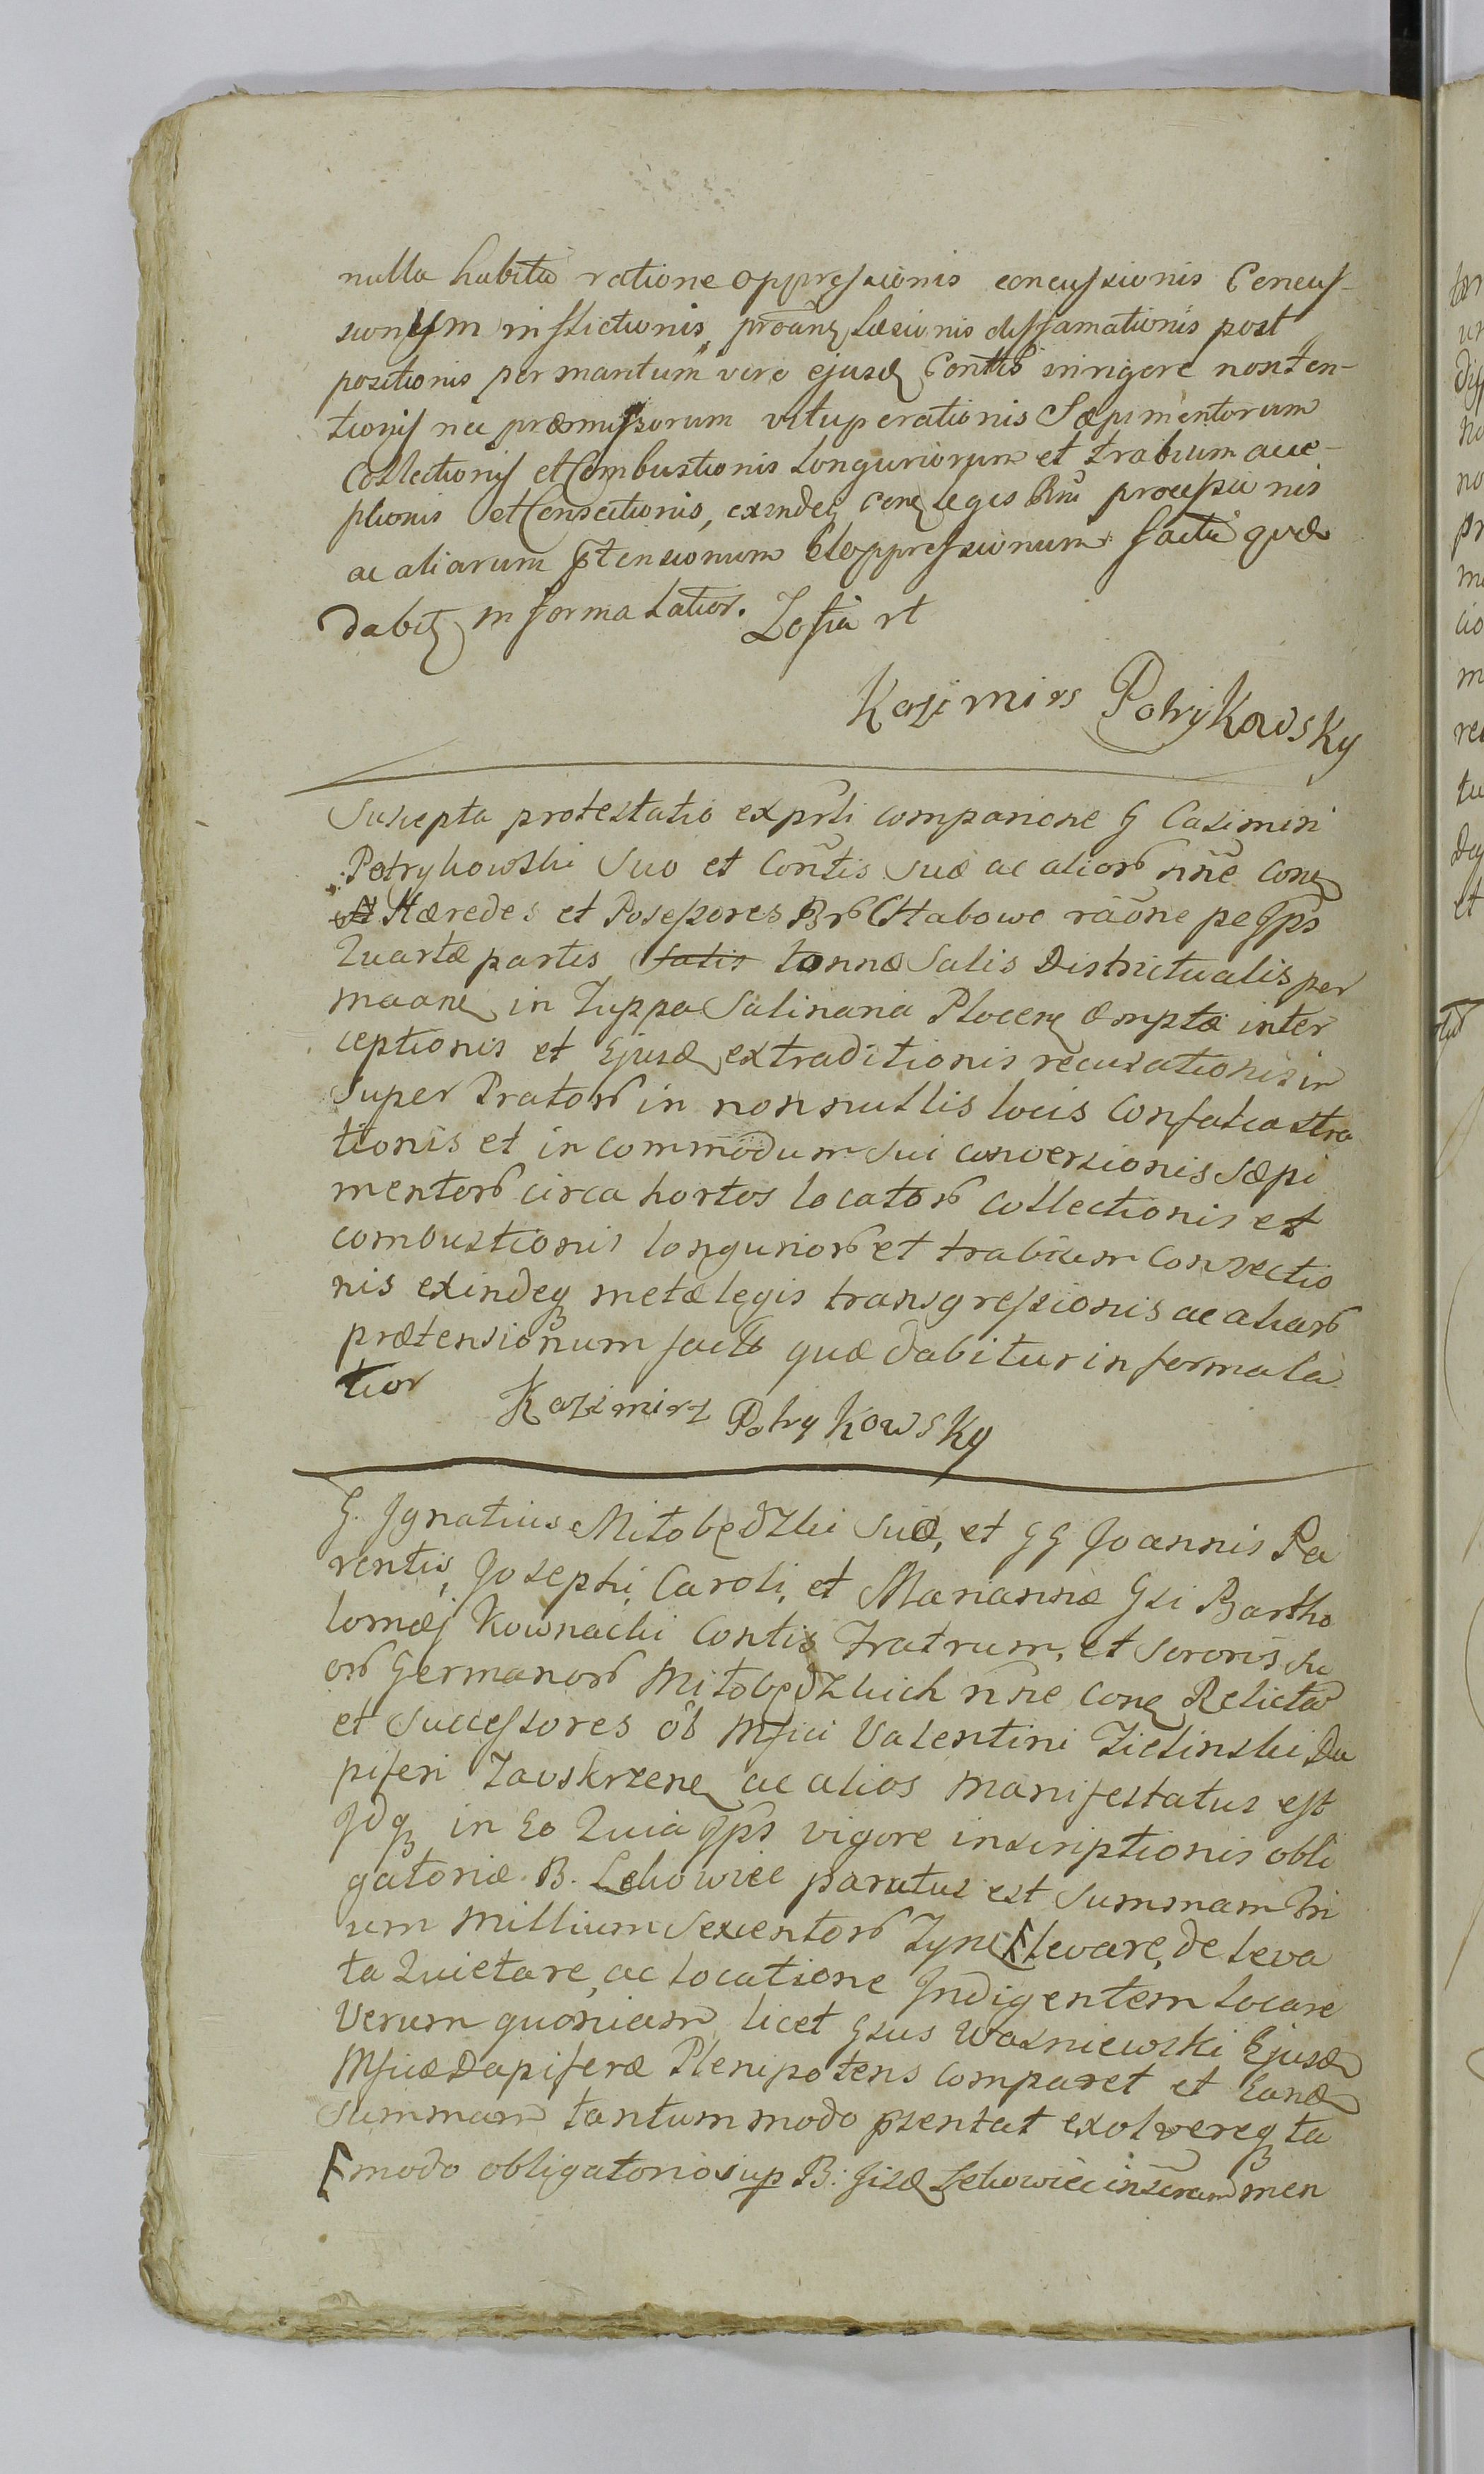 nulla habita ratione oppressionis concussionis Concus-
sionum inflictionis, læsionis diffamationis post
positionis per maritum vero ejusd Contis nonten-
tionis nec præmissorum vituperationis Sæpimentorum
Collectionis et Combustionis Longuriorum et trabium acce-
ptionis et Consectionis, exindeq legis
ac aliarum ptensionum et oppressionum facta quæ
dabit in forma latior. Zofia
Kazimirs PotryKowsKy
Suscepta protestatio ex prsti comparione G Casimiri
Potrykowski Suo et Contis suæ ac alior nne Con
Hæredes et Possessores Br Chabowe raone
Quartæ partis Salis tonnæ Salis Districtualis per
in Zuppa Salinaria Plocen emptæ inter
ceptionis et Ejusd extraditionis recusationis in
super Prator in nonnullis locis Confalcastra
tionis et in commodum sui conversionis Sæpi
mentor circa hortos locator collectionis et
combustionis longurior et trabium Convectio
nis exindeq metæ legis transgressionis ac aliar
prætensionum facta quæ dabitur in forma la
tior Kazimirz PotryKowsKy
G. Ignatius Miłobędzki suo, et GG Joannis Pa
rentis, Josephi, Caroli, et Mariannæ Gsi Bartho
lomæj Kownacki Contis Fratrum, et Sororis su
or Germanor Miłobędzkich nne Con Relicta
et Successores ol Mfici Valentini Zielinski Da
piferi Zawskrzen ac alios manifestatus est
Idq in Eo Quia Ips vigore inscriptionis obli
gatoriæ B. Lekowiec paratus est Summam Tri
um Millium Sexcentor levare, de leva
ta Quietare, ac locatione Indigentem locare
Verum quoniam licet Gsus Wasniewski Ejusd
Mficæ Dapiferæ Plenipotens comparet et Eand
Summam tantummodo psentat exolvereq ta
modo obligatorio sup B: Lekowiec men